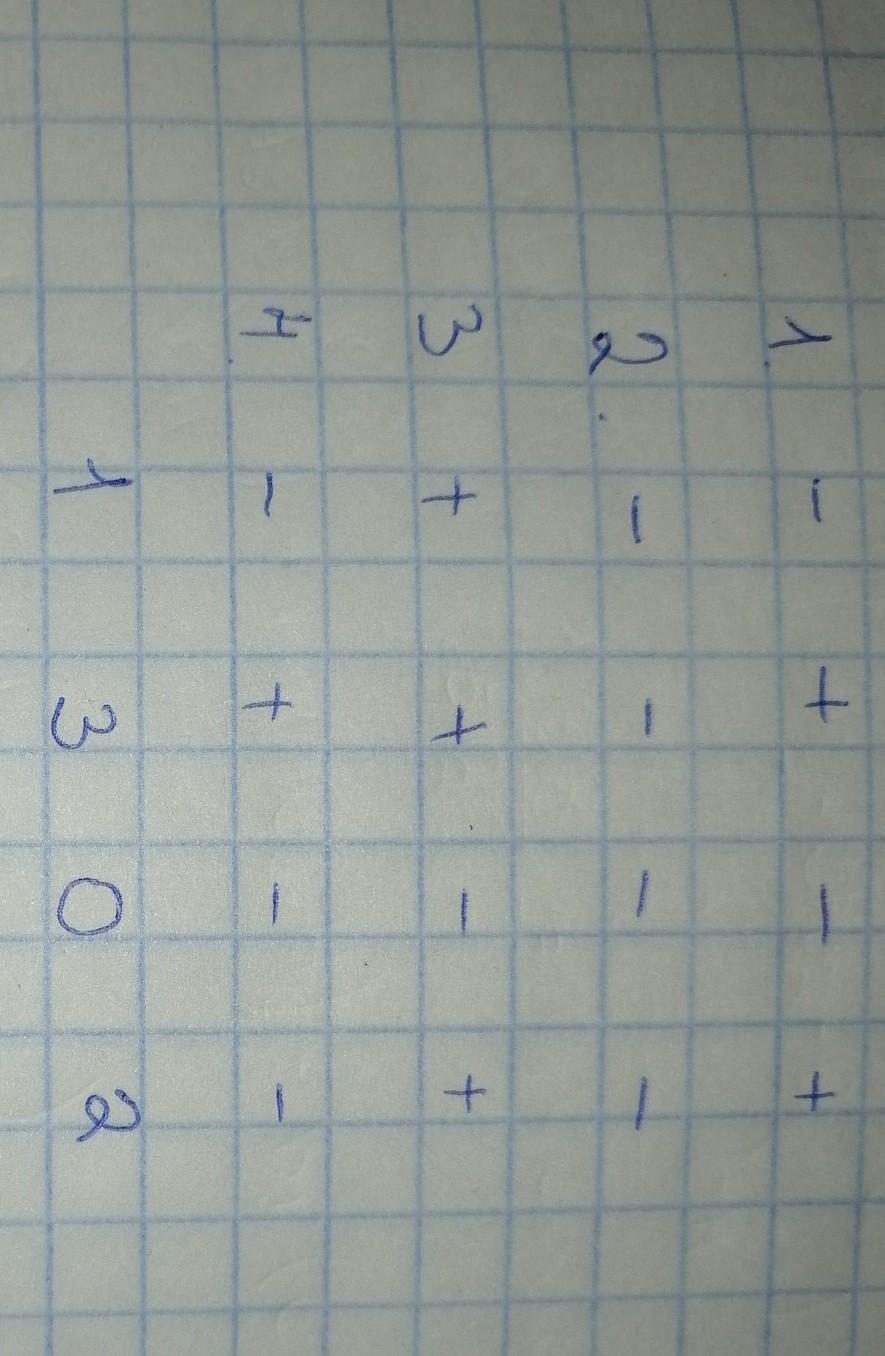 1. - + - +
2. - - - -
3 + + - +
4. - + - -
1 3 0 2